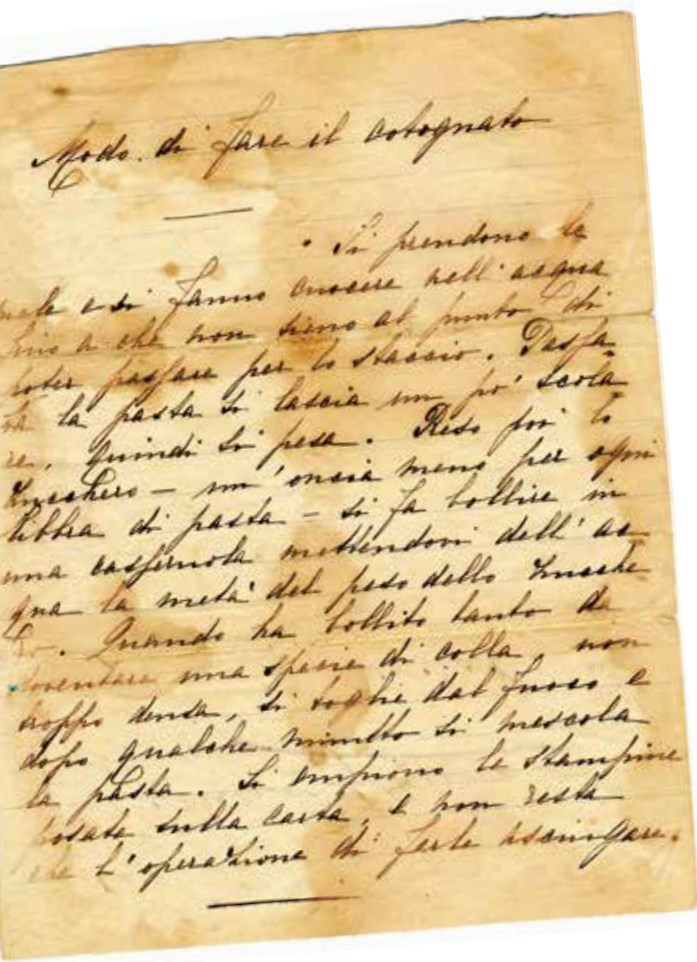 Modo di fare il cotognato
Si prendono le
mele e si fanno cuocere nell'acqua
fino a che non sieno al punto di
poter passare per lo staccio. Passa
ta la pasta si lascia un po' scola
re, quindi si pesa. Peso poi lo
zucchero – un'oncia meno per ogni
libbra di pasta – si fa bollire in
una casseruola mettendovi dell'ac
qua la metà del peso dello zucche
ro. Quando ha bollito tanto da
diventare una specie di colla, non
troppo densa, si toglie dal fuoco e
dopo qualche minuto si mescola
la pasta. Si empiono le stampine
posate sulla carta, e non resta
che l'operazione di farle asciugare.